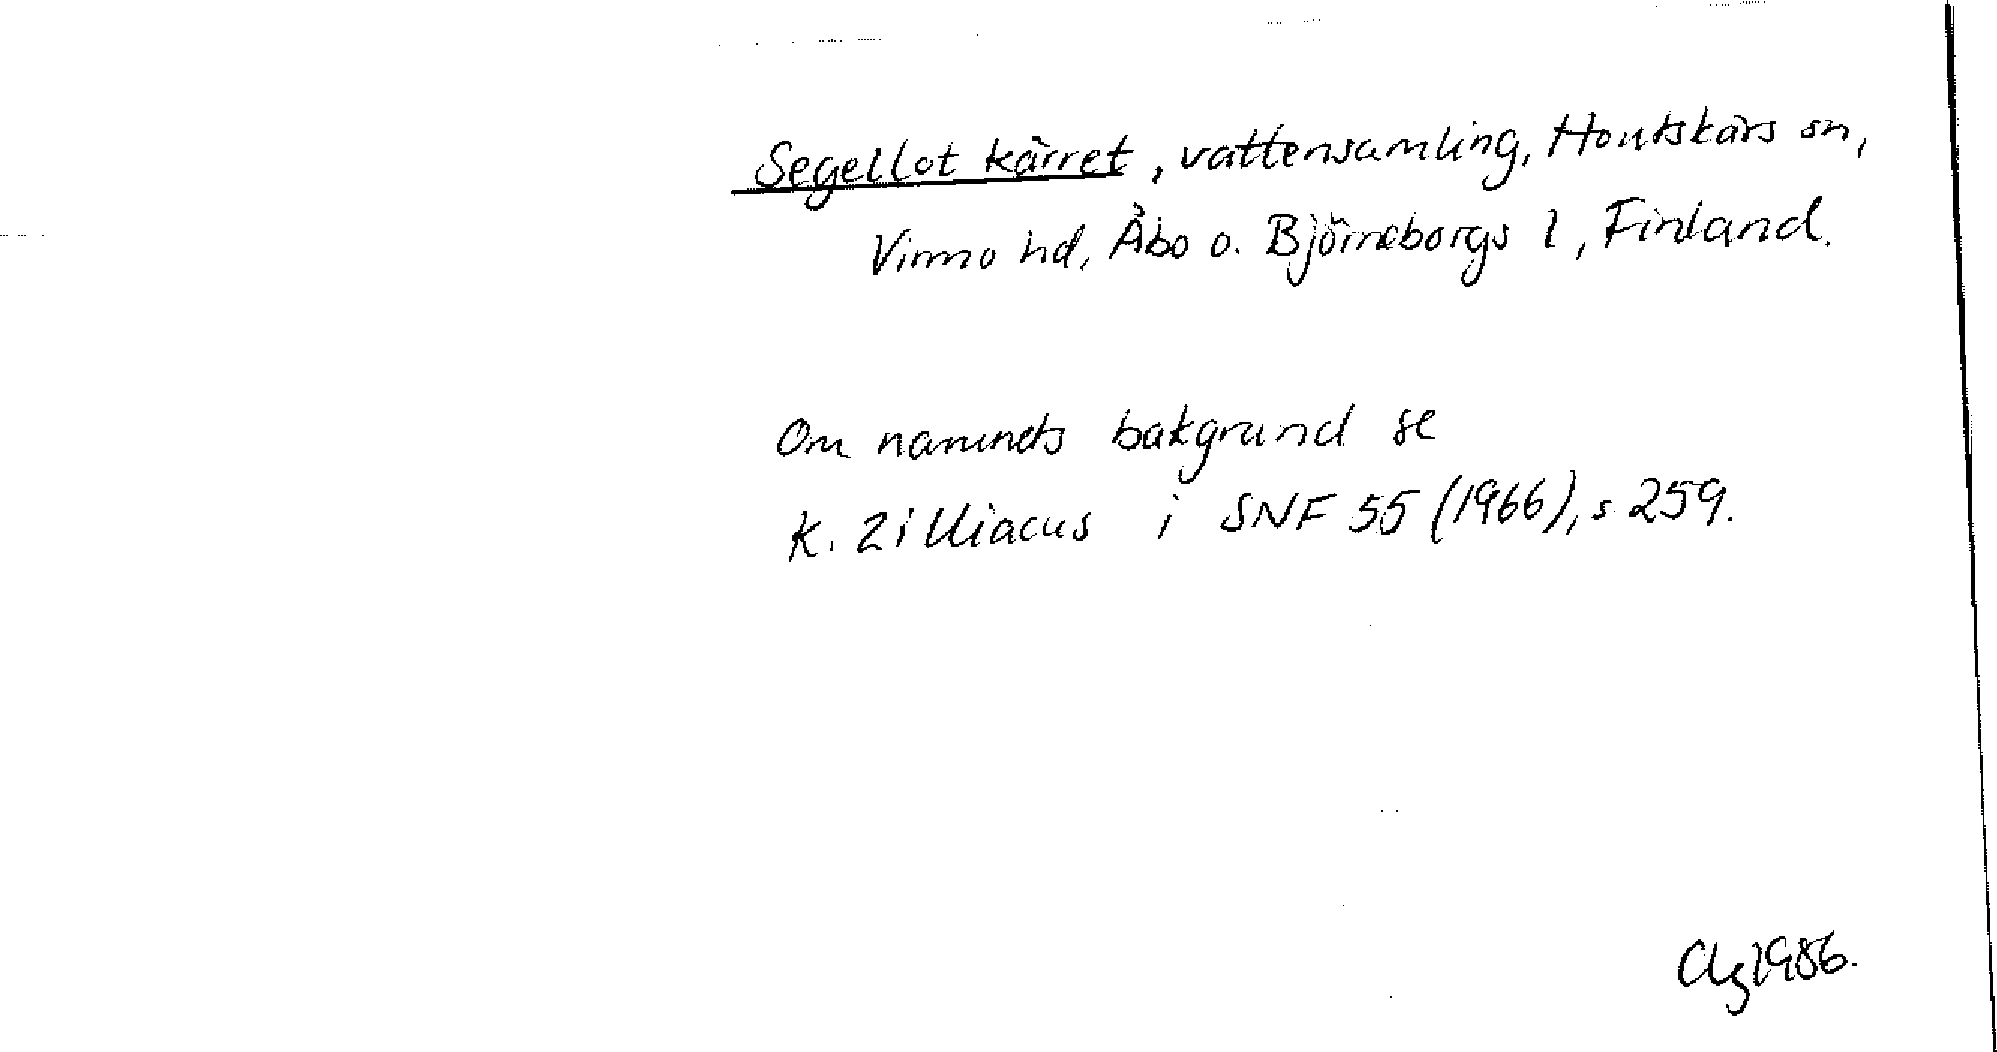 Segellot kärret, vattensamling, Houtskärs sn,
Virmo hd, Åbo o. Björneborgs l, Finland.
Om namnets bakgrund se
K. Zilliacus i SNF 55 (1966), s 259.
1986.